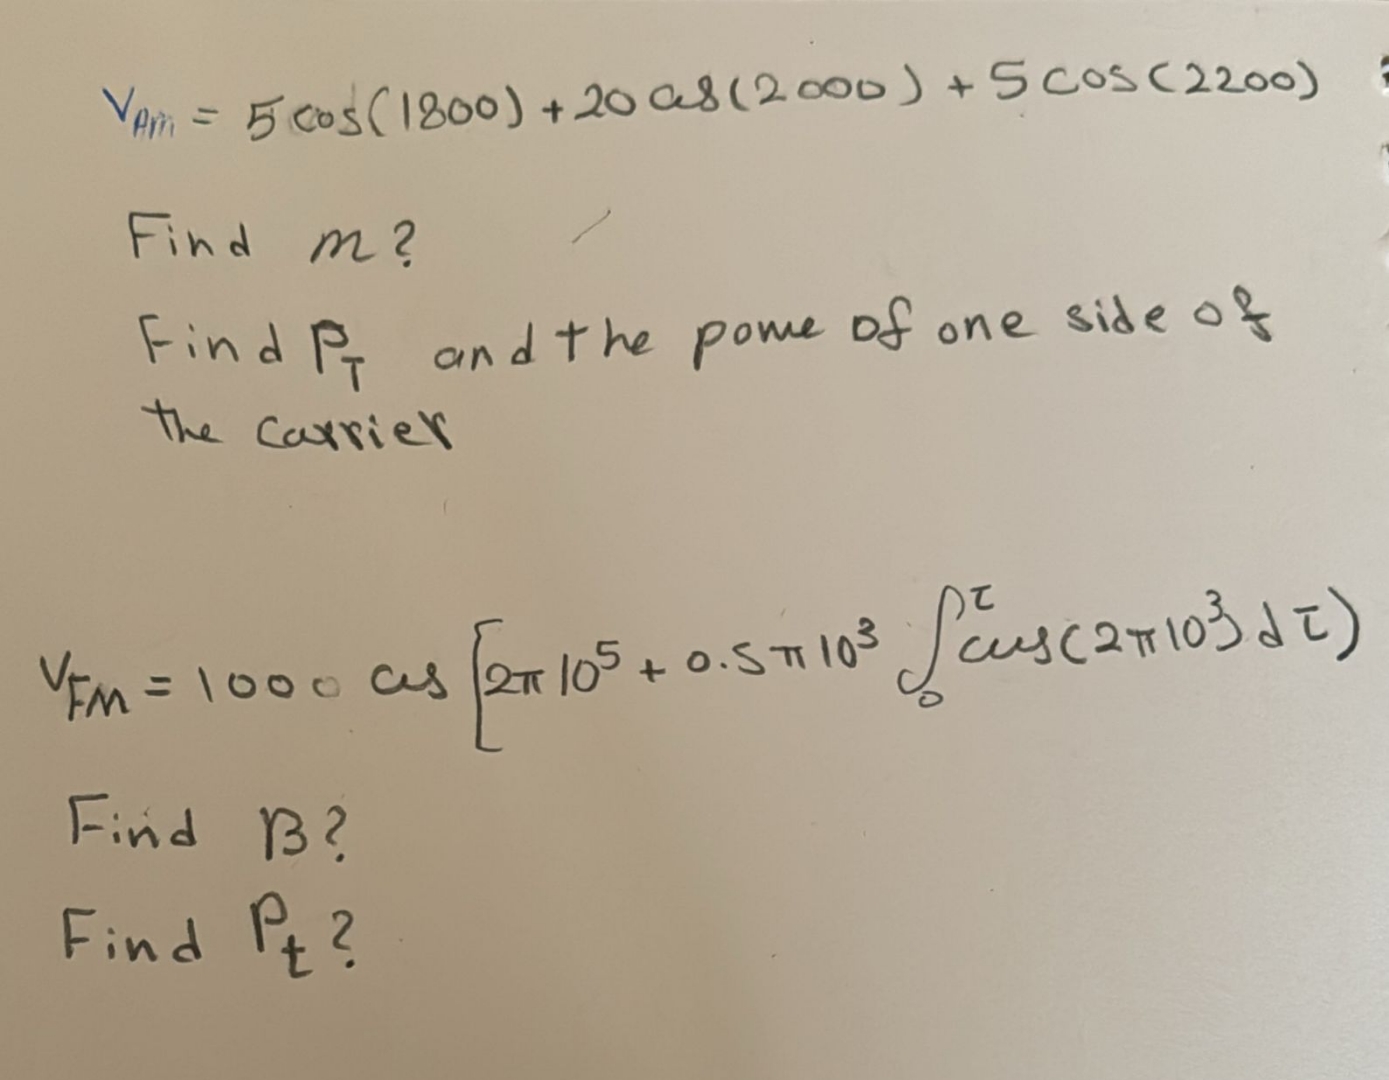 V_Am = 5 cos(1800) + 20 cos(2000) + 5 cos(2200)
Find m?
Find P_T and the powe of one side of
the carrier
V_FM = 1000 cos [2π 10⁵ + 0.5 π 10³ ∫₀^τ cos(2π10³) dτ)
Find β?
Find P_t?